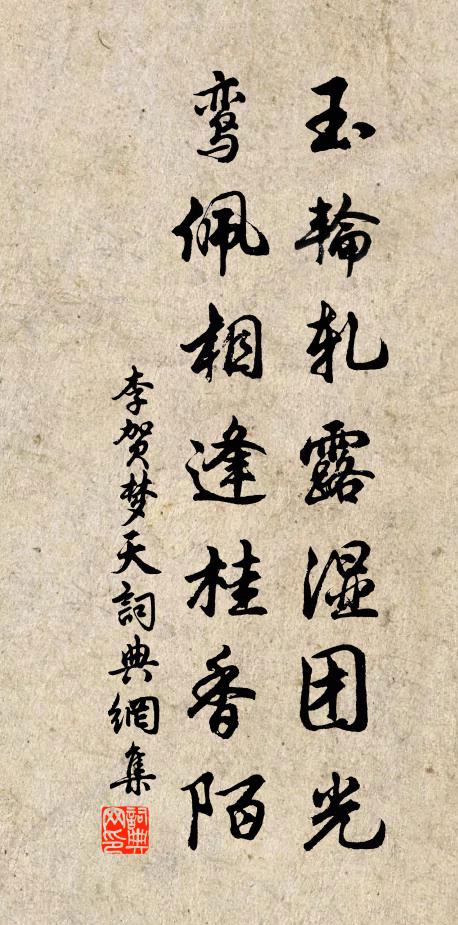 玉輪軋露湿团光
鸾佩相逢桂香陌
李贺梦天詞典網集
詞典
网印